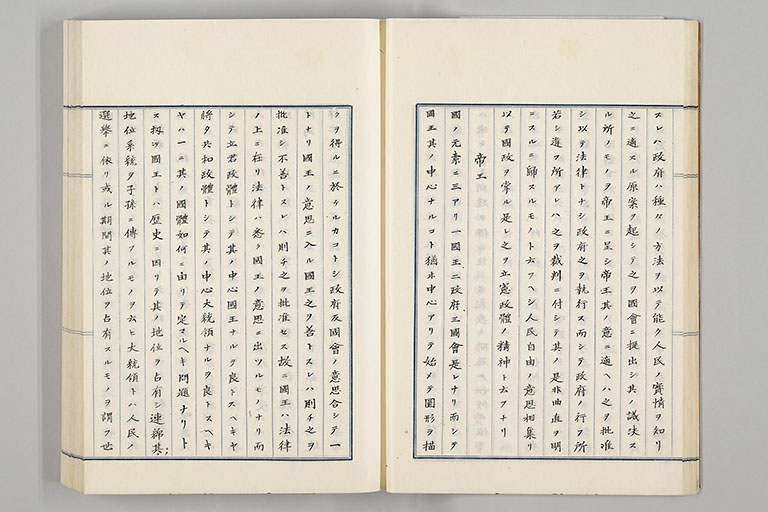 スレハ政府ハ種々ノ方法ヲ以テ能ク人民ノ實情ヲ知リ
之ニ適スル原案ヲ起シテ之ヲ國會ニ提出シ其ノ議決ス
ル所ノモノヲ帝王ニ呈シ帝王其ノ意ニ適ヘハ之ヲ批准
シ以テ法律トナシ政府之ヲ執行ス而シテ政府ノ行フ所
若シ違フ所アレハ之ヲ裁判ニ付シテ其ノ是非曲直ヲ明
ニスルニ歸スルモノト云フヘシ人民自由ノ意思相集リ
以テ國政ヲ掌ル是レ之ヲ立憲政體ノ精神ト云フナリ
帝王
國ノ元素ニ三アリ一國王二政府三國會是レナリ而シテ
國王其ノ中心ナルコト猶ホ中心アリテ始メテ圓形ヲ描
クヲ得ルニ於ケルカコトシ政府及國會ノ意思合シテ一
トナリ國王ノ意思ニ入ル國王之ヲ善トスレハ則チ之ヲ
批准シ不善トスレハ則チ之ヲ批准セス故ニ國王ハ法律
ノ上ニ在リ法律ハ悉ク國王ノ意思ニ出ツルモノナリ而
シテ立君政體トシテ其ノ中心國王ナルヲ良トスヘキヤ
將タ共和政體トシテ其ノ中心大統領ナルヲ良トスヘキ
ヤハ一ニ其ノ國體如何ニ由リテ定マルヘキ問題ナリト
ス抑ヽ國王トハ歷史ニ因リテ其ノ地位ヲ占有シ連綿其
地位系統ヲ子孫ニ傳フルモノヲ云ヒ大統領トハ人民ノ
選擧ニ依リ或ル期間其ノ地位ヲ占有スルモノヲ謂フ世